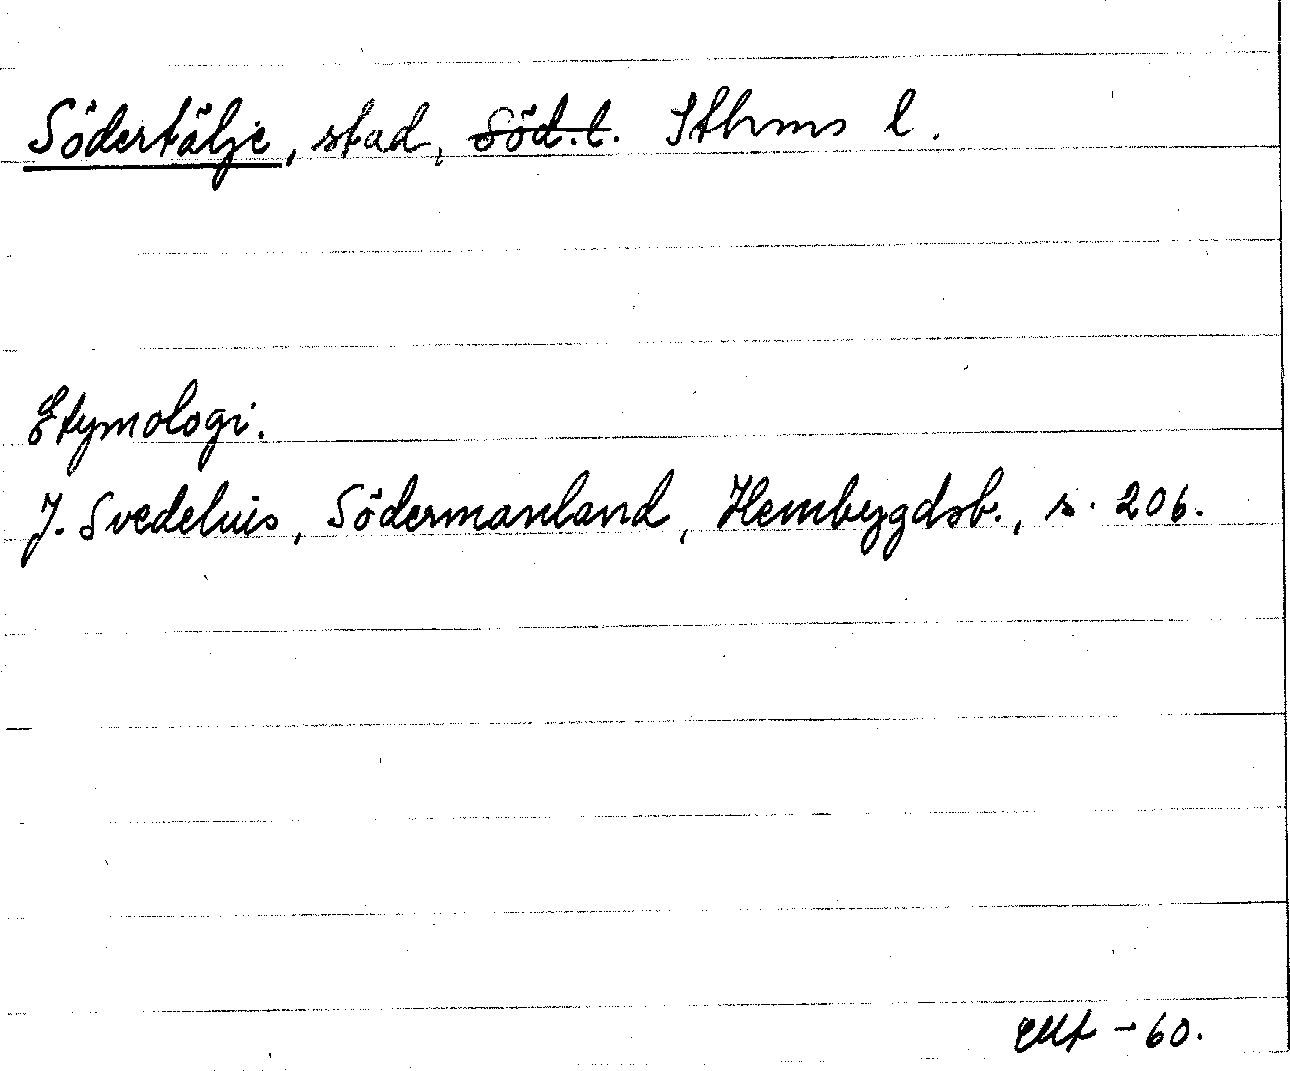 Södertälje, stad, Söd. l. Sthms l.
Etymologi.
J. Svedelius, Södermanland, Hembygdsb., s. 206.
-60.